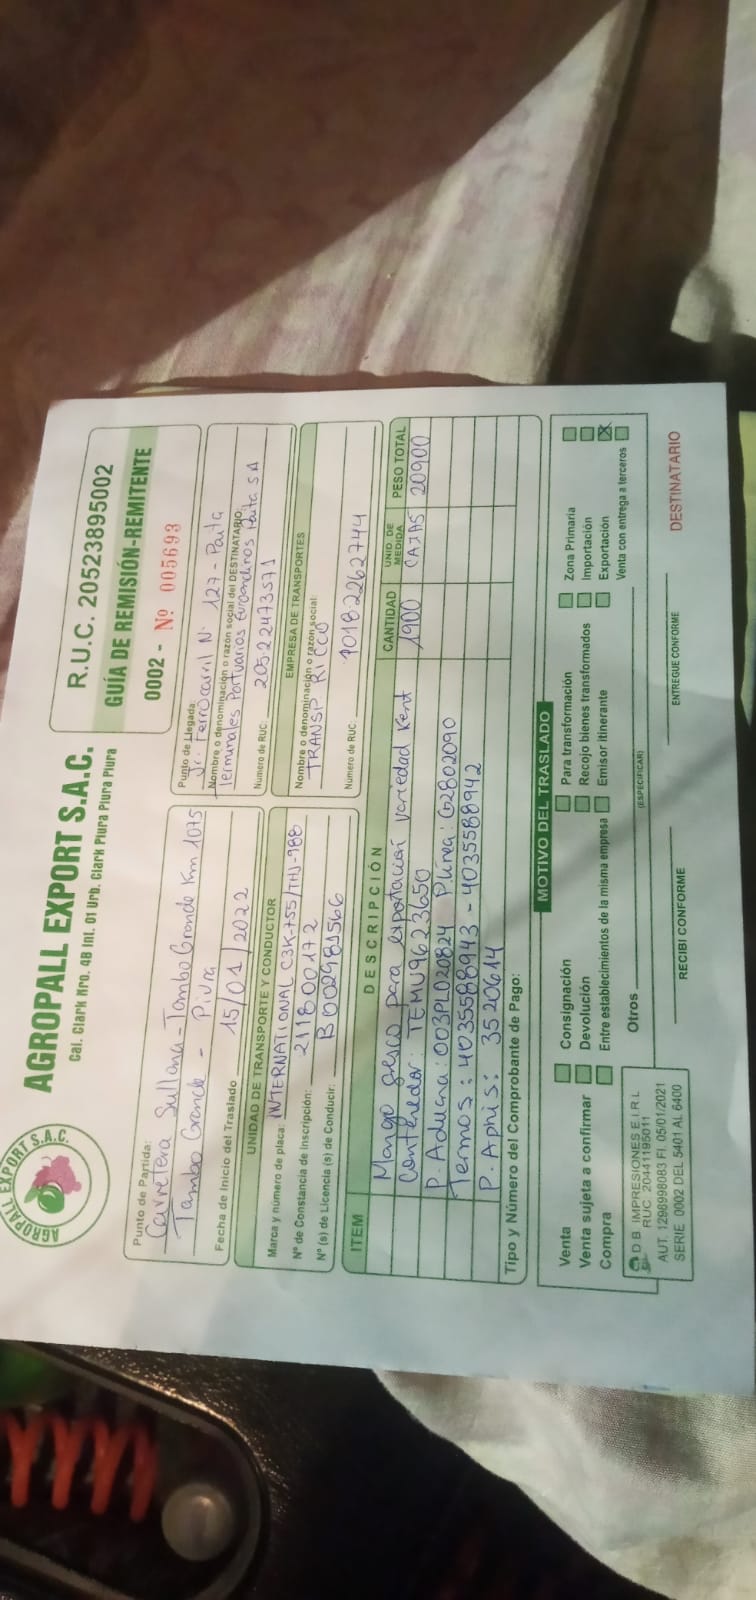 AGROPALL EXPORT S.A.C.
AGROPALL EXPORT S.A.C.
Cal. Clark Nro. 4B Int. 01 Urb. Clark Piura Piura Piura
R.U.C. 20523895002
GUÍA DE REMISIÓN-REMITENTE
0002 - Nº 005693
Punto de Partida:
Carretera Sullana - TamboGrande Km 1075
Tambo Grande - Piura
Fecha de Inicio del Traslado 15/01/2022
Punto de Llegada:
Jr. Ferrocarril N. 127 - Paita
Nombre o denominación o razón social del DESTINATARIO
Terminales Portuarios Euroandinos Paita SA
Número de RUC: 20522473571
UNIDAD DE TRANSPORTE Y CONDUCTOR
Marca y número de placa: INTERNATIONAL C3K-755/THJ-988
Nº de Constancia de Inscripción: 211800172
Nº (s) de Licencia (s) de Conducir: B002981566
EMPRESA DE TRANSPORTES
Nombre o denominación o razón social:
TRANSP RICCO
Número de RUC: 10182262744
ITEM DESCRIPCIÓN CANTIDAD UNID. DE MEDIDA PESO TOTAL
Mango fresco para exportacion variedad Kent 1900 CAJAS 20900
Contenedor: TEMU9623650
P. Aduana: 003PL020824 P. Linea: G2802090
Termos: 4035588943 - 4035588942
P. Aphis: 3520614
Tipo y Número del Comprobante de Pago:
MOTIVO DEL TRASLADO
Venta Consignación Para transformación Zona Primaria
Venta sujeta a confirmar Devolución Recojo bienes transformados Importación
Compra Entre establecimientos de la misma empresa Emisor itinerante Exportación X
Otros Venta con entrega a terceros
(ESPECIFICAR)
D.B. IMPRESIONES E.I.R.L
RUC 20441195011
AUT. 1296998083 FI. 05/01/2021
SERIE 0002 DEL 5401 AL 6400
RECIBI CONFORME
ENTREGUE CONFORME
DESTINATARIO